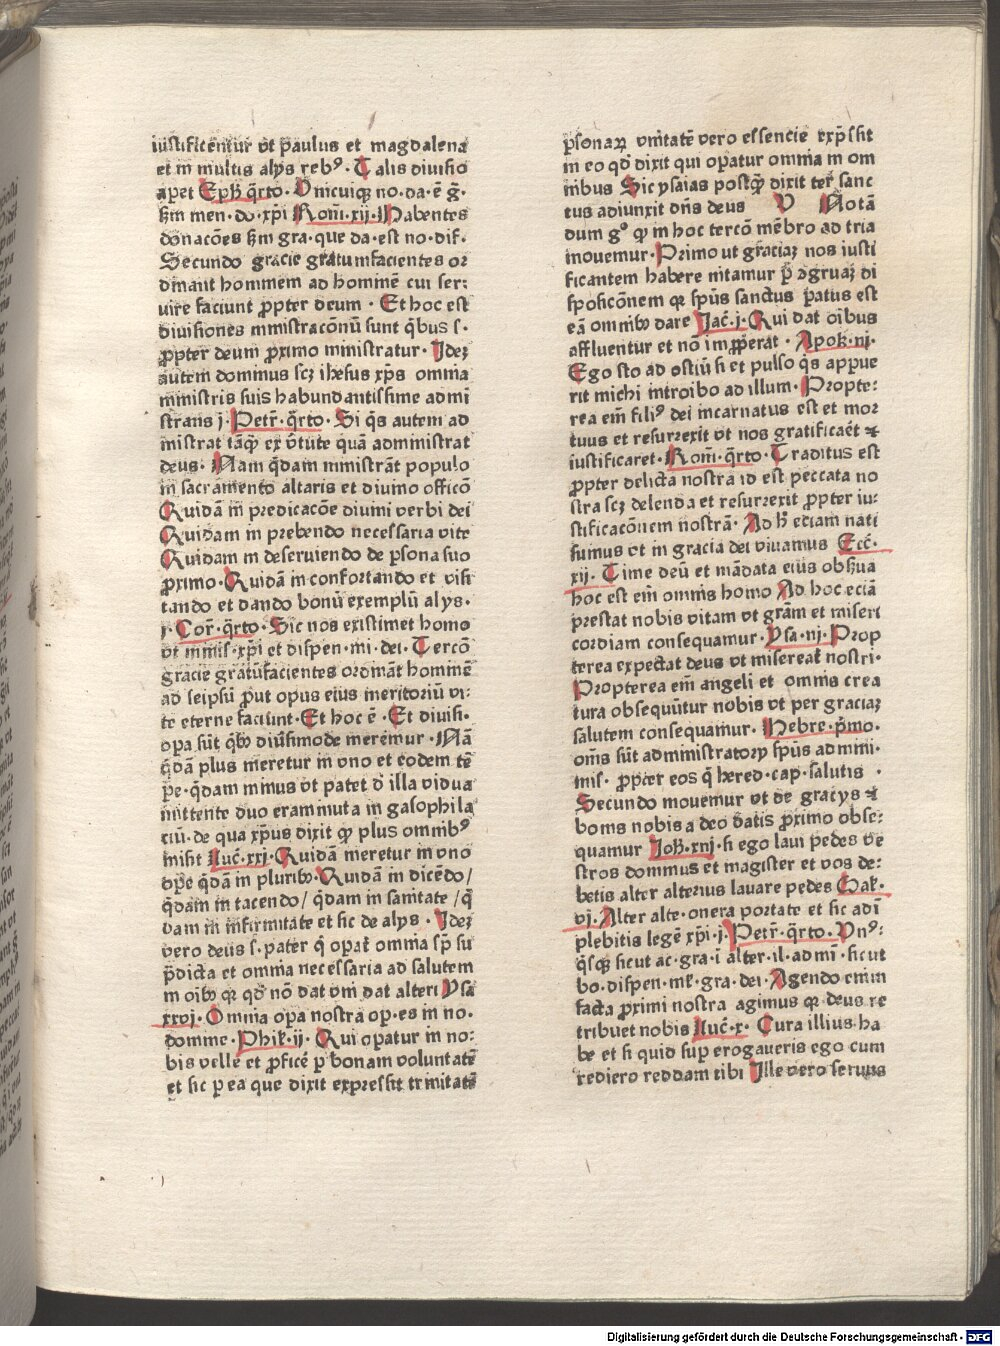 iustificentur vt paulus et magdalena
et in multis alijs reb⁹. Talis diuisio
apet Eph̄ q̄rto. Vnicuiqꝫ no. da. ē ḡ.
ẜm men. do. xp̄i Rom̄. xij. Habentes
donacōes ẜm gra. que da. est no. dif.
Secundo gracie gratumfacientes or
dinant hominem ad hominē cui ser⸗
uire faciunt ꝓpter deum. Et hoc est
diuisiones ministracōnū sunt q̄bus s.
ꝓpter deum ꝓximo ministratur. Ideꝫ
autem dominus scꝫ ihesus xp̄s omnia
ministris suis habundantissime admi
strans j. Petr̄. q̄rto. Si q̄s autem ad
ministrat tāq̄ꝫ ex v̄tute quā administrat
deus. Nam q̄dam ministrāt populo
in sacramento altaris et diuino officō
Quidā in predicacōe diuini verbi dei
Quidam in prebendo necessaria vite
Quidam in deseruiendo de ꝑsona suo
ꝓximo. Quidā in confortando et visi
tando et dando bonū exemplū alijs.
j. Cor̄. q̄rto. Sic nos existimet homo
vt minis. xp̄i et dispen. mi. dei. Tercō
gracie gratūfacientes ordināt hominē
ad seipsū ꝓut opus eius meritoriū vi⸗
te eterne faciunt. Et hoc ē. Et diuisi.
opa sūt q̄bꝫ diūsimode meremur. Nā
q̄dā plus meretur in vno et eodem tē
pe. q̄dam minus vt patet d̄ illa vidua
mittente duo eram minuta in gasophila
ciū. de qua xp̄us dixit ꝙ plus omnib⁹
misit Luc̄. xxj. Quidā meretur in vno
oꝑe q̄dā in pluribꝫ. Quidā in dicēdo/
q̄dam in tacendo/ q̄dam in sanitate/ q̄
dam in infirmitate et sic de alijs. Ideꝫ
vero deus s. pater q̄ opat̄ omnia sp̄ su
p̄dicta et omnia necessaria ad salutem
in oībꝫ qꝛ qd̄ nō dat vni dat alteri Ysa
xxvj. Omnia opa nostra op. es in no.
domine. Phil̄. ij. Qui opatur in no⸗
bis velle et ꝑficē ꝓ bonam voluntatē
et sic ꝑ ea que dixit expressit trinitatē
ꝑsonaꝝ vnitatē vero essencie exp̄ssit
in eo qd̄ dixit qui opatur omnia in om
nibus Sic ysaias postq̄ꝫ dixit ter sanc
tus adiunxit dn̄s deus V Notā
dum g° ꝙ in hoc tercō mēbro ad tria
mouemur. Primo ut graciaꝫ nos iusti
ficantem habere nitamur ꝑ ꝯgruaꝫ di
sposicōnem qꝛ sp̄us sanctus paratus est
eā omnibꝫ dare Jac̄. j. Qui dat oībus
affluentur et nō impꝓperat. Apok̄. iij.
Ego sto ad ostiū si et pulso q̄s appue
rit michi introibo ad illum. Propte⸗
rea em̄ fili⁹ dei incarnatus est et mor
tuus et resurrexit vt nos gratificaēt ⁊
iustificaret. Rom̄. q̄rto. Traditus est
ꝓpter delicta nostra id est peccata no
stra scꝫ delenda et resurrexit ꝓpter iu⸗
stificacōnem nostrā. Ad h̄ eciam nati
sumus vt in gracia dei viuamus Ecc̄.
xij. Time deū et mādata eius obẜua
hoc est em̄ omnis homo Ad hoc eciā
prestat nobis vitam vt gram̄ et miseri
cordiam consequamur. Ysa. iij. Prop
terea expectat deus vt misereat̄ nostri.
Propterea em̄ angeli et omnis crea
tura obsequūtur nobis vt per graciaꝫ
salutem consequamur. Hebre. p̄mo.
om̄s sūt administratorij sp̄us ad mini.
mis. ꝓpter eos q̄ hered. cap. salutis.
Secundo mouemur vt de gracijs ⁊
bonis nobis a deo datis ꝓximo obse⸗
quamur Joh̄. xiij. si ego laui pedes ve
stros dominus et magister et vos de⸗
betis alter alterius lauare pedes Gal̄.
vj. Alter alte. onera portate et sic adī
plebitis legē xp̄i. j. Petr̄. q̄rto. Vn⁹⸗
q̄sqꝫ sicut ac. gra. ī alter. il. ad mī. sicut
bo. dispen. ml̄. gra. dei. Agendo enim
facta ꝓximi nostra agimus qꝛ deus re
tribuet nobis Luc̄. x. Cura illius ha
be et si quid suꝑ erogaueris ego cum
rediero reddam tibi Ille vero seruus
Digitalisierung gefördert durch die Deutsche Forschungsgemeinschaft - DFG